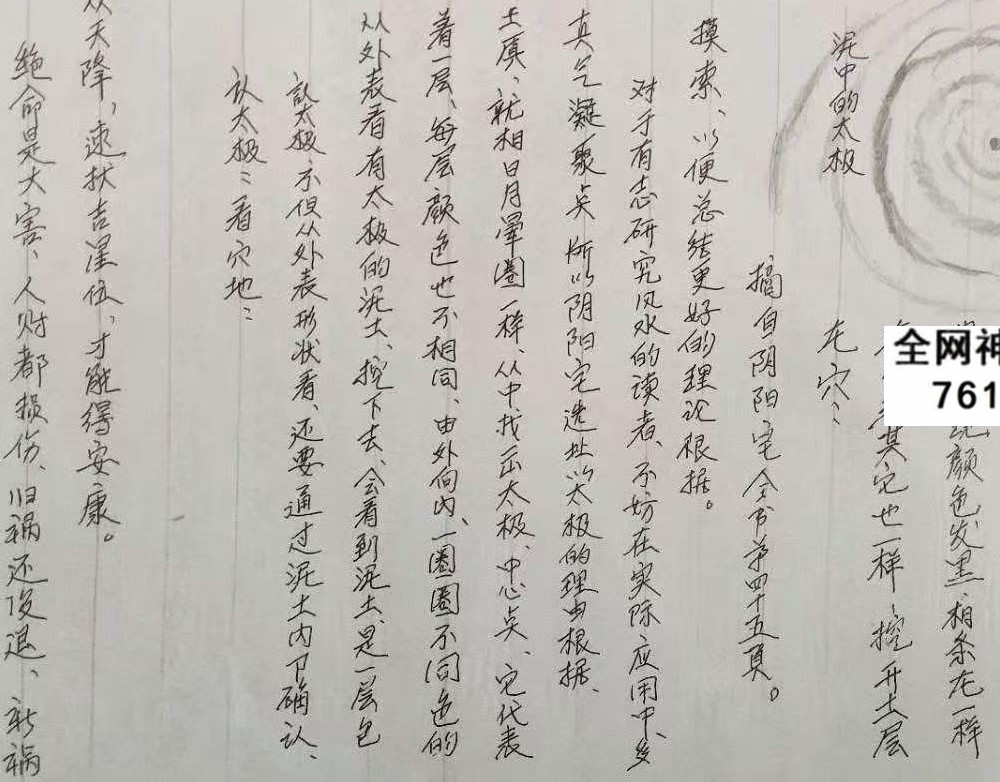 绝命是大害、人财都损伤、旧祸还没退、新祸
从天降，速扶吉星位，才能得安康。
认太极：看穴地：
认太极不但从外表形状看、还要通过泥土内卫确认、
从外表看有太极的泥土、挖下去、会看到泥土、是一层包
着一层、每层颜色也不相同、由外向内、一圈圈不同色的
土质、就相日月晕圈一样、从中找出太极、中心点、它代表
真气凝聚点 所以阴阳宅选址以太极的理由根据、
对于有志研究风水的读者、不妨在实际应用中、多
摸索、以便总结更好的理论根据。
摘自阴阳宅全书第四十五页。
泥中的太极
左穴：
其它也一样 挖开土层
颜色发黑 相条左一样
全网神
761